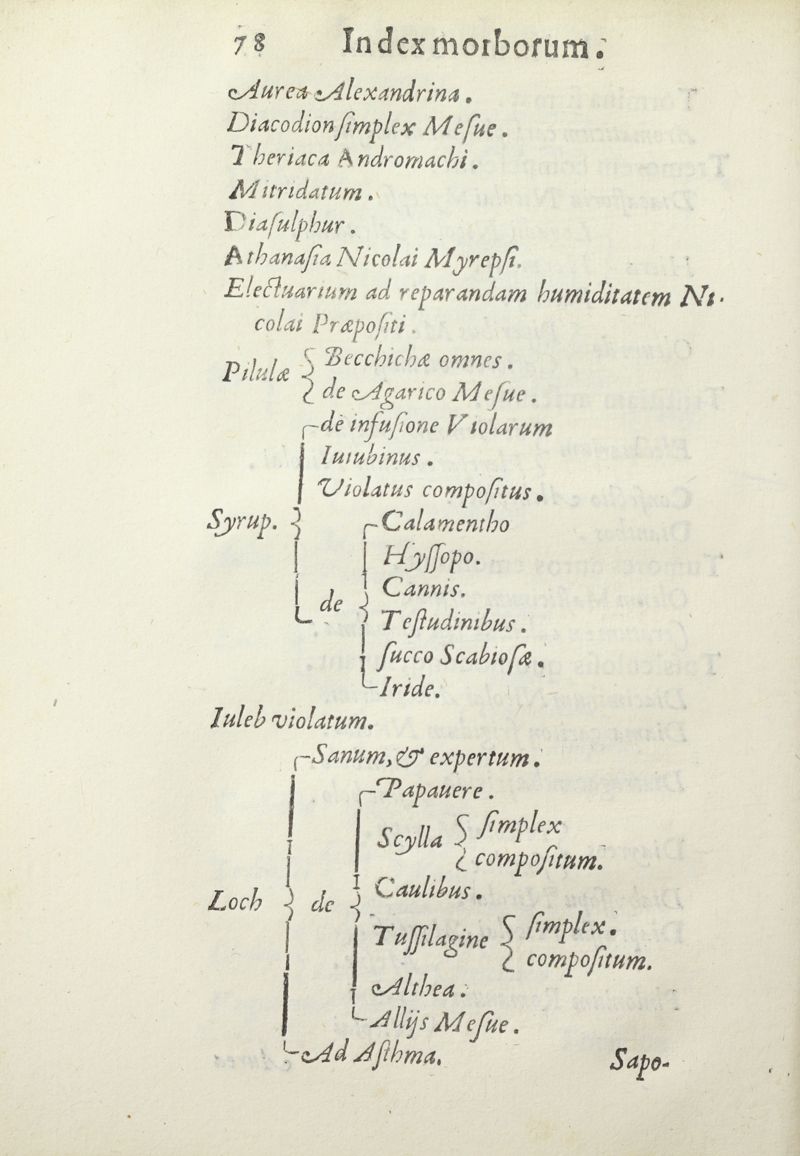 78 Index morborum.
Aurea Alexandrina.
Diacodion ſimplex Meſue.
Theriaca Andromachi.
Mitridatum.
Diaſulphur.
Athanaſia Nicolai Myrepſi.
Electuarium ad reparandam humiditatem Ni-
colai Præpoſiti.
Pilulæ { Becchichæ omnes.
de Agarico Meſue.
de infuſione Violarum
Iuiubinus.
Violatus compoſitus.
Syrup. { Calamentho
Hyſſopo.
Cannis.
de { Teſtudinibus.
ſucco Scabioſæ.
Iride.
Iuleb violatum.
Sanum, & expertum.
Papauere.
Scylla { ſimplex
compoſitum.
Loch { de { Caulibus.
Tuſſilagine { ſimplex.
compoſitum.
Althea.
Allijs Meſue.
Ad Aſthma.
Sapo-